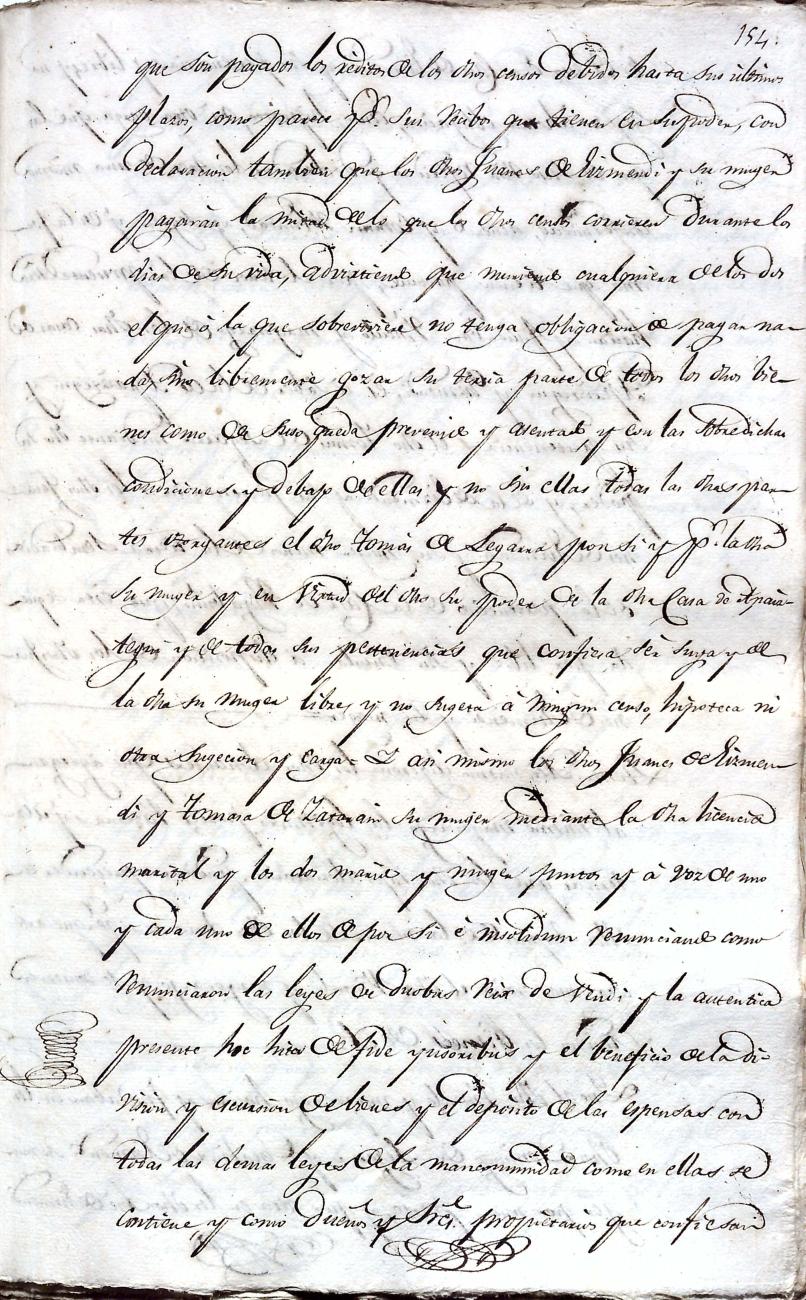 154.
que son pagados los reditos de los dhos censos debidos hasta sus ultimos
plazos, como parece pr. sus recibos que tienen en su poder, con
declaracion tambien que los dhos Juanes de Eizmendi y su muger
pagarán la mitad de lo que los dhos censos corrieren durante los
dias de su vida, advirtiend que muriend cualquiera de los dos
el que ó la que sobreviviere no tenga obligacion de pagar na-
da, sino libremente gozar su tercia parte de todos los dhos bie-
nes como de suso queda prevenid y asentad y con las sobredichas
condiciones y debajo de ellas y no sin ellas todas las dhas par-
tes otorgantes el dho Tomás de Legarra por si y pr. la dha
su muger y en virtud del dho su poder de la dha Casa de Apaiz-
tegui y de todas sus pertenencias que confiesa ser suya y de
la dha su muger libre, y no sugeta á ningun censo, hipoteca ni
otra sugecion y carga = Y asi mismo los dhos Juanes de Eizmen-
di y Tomasa de Zatarain su muger mediante la dha licencia
marital y los dos marid y muger juntos y á voz de uno
y cada uno de ellos de por si é insolidum renunciand como
renunciaron las leyes de duobus reix de vendi y la autentica
presente hoc hita de fide yusoribus y el beneficio de la di-
vision y escursion de bienes y el deposito de las espensas con
todas las demas leyes de la mancomunidad como en ellas se
contiene, y como dueños y Sres. propietarios que confiesan